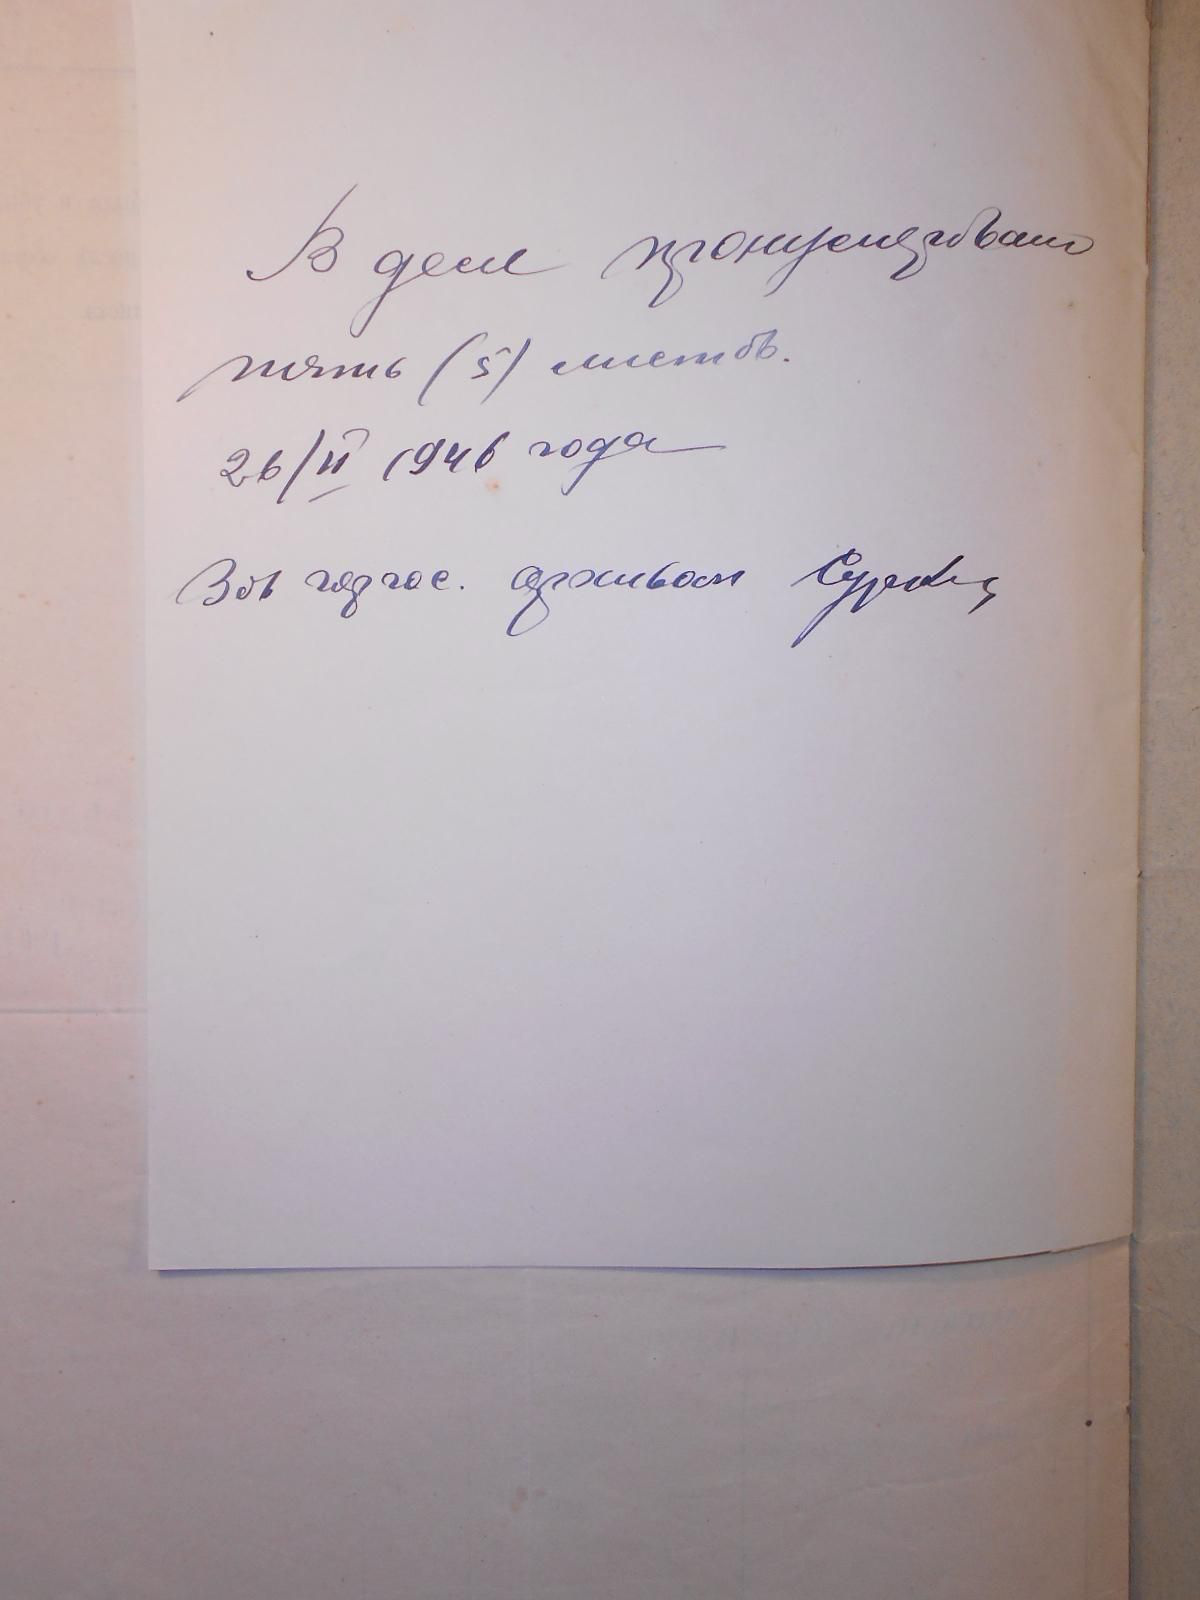 В деле пронумеровано
пять (5) листов.
26/II 1946 года
Зав гор гос. архивом